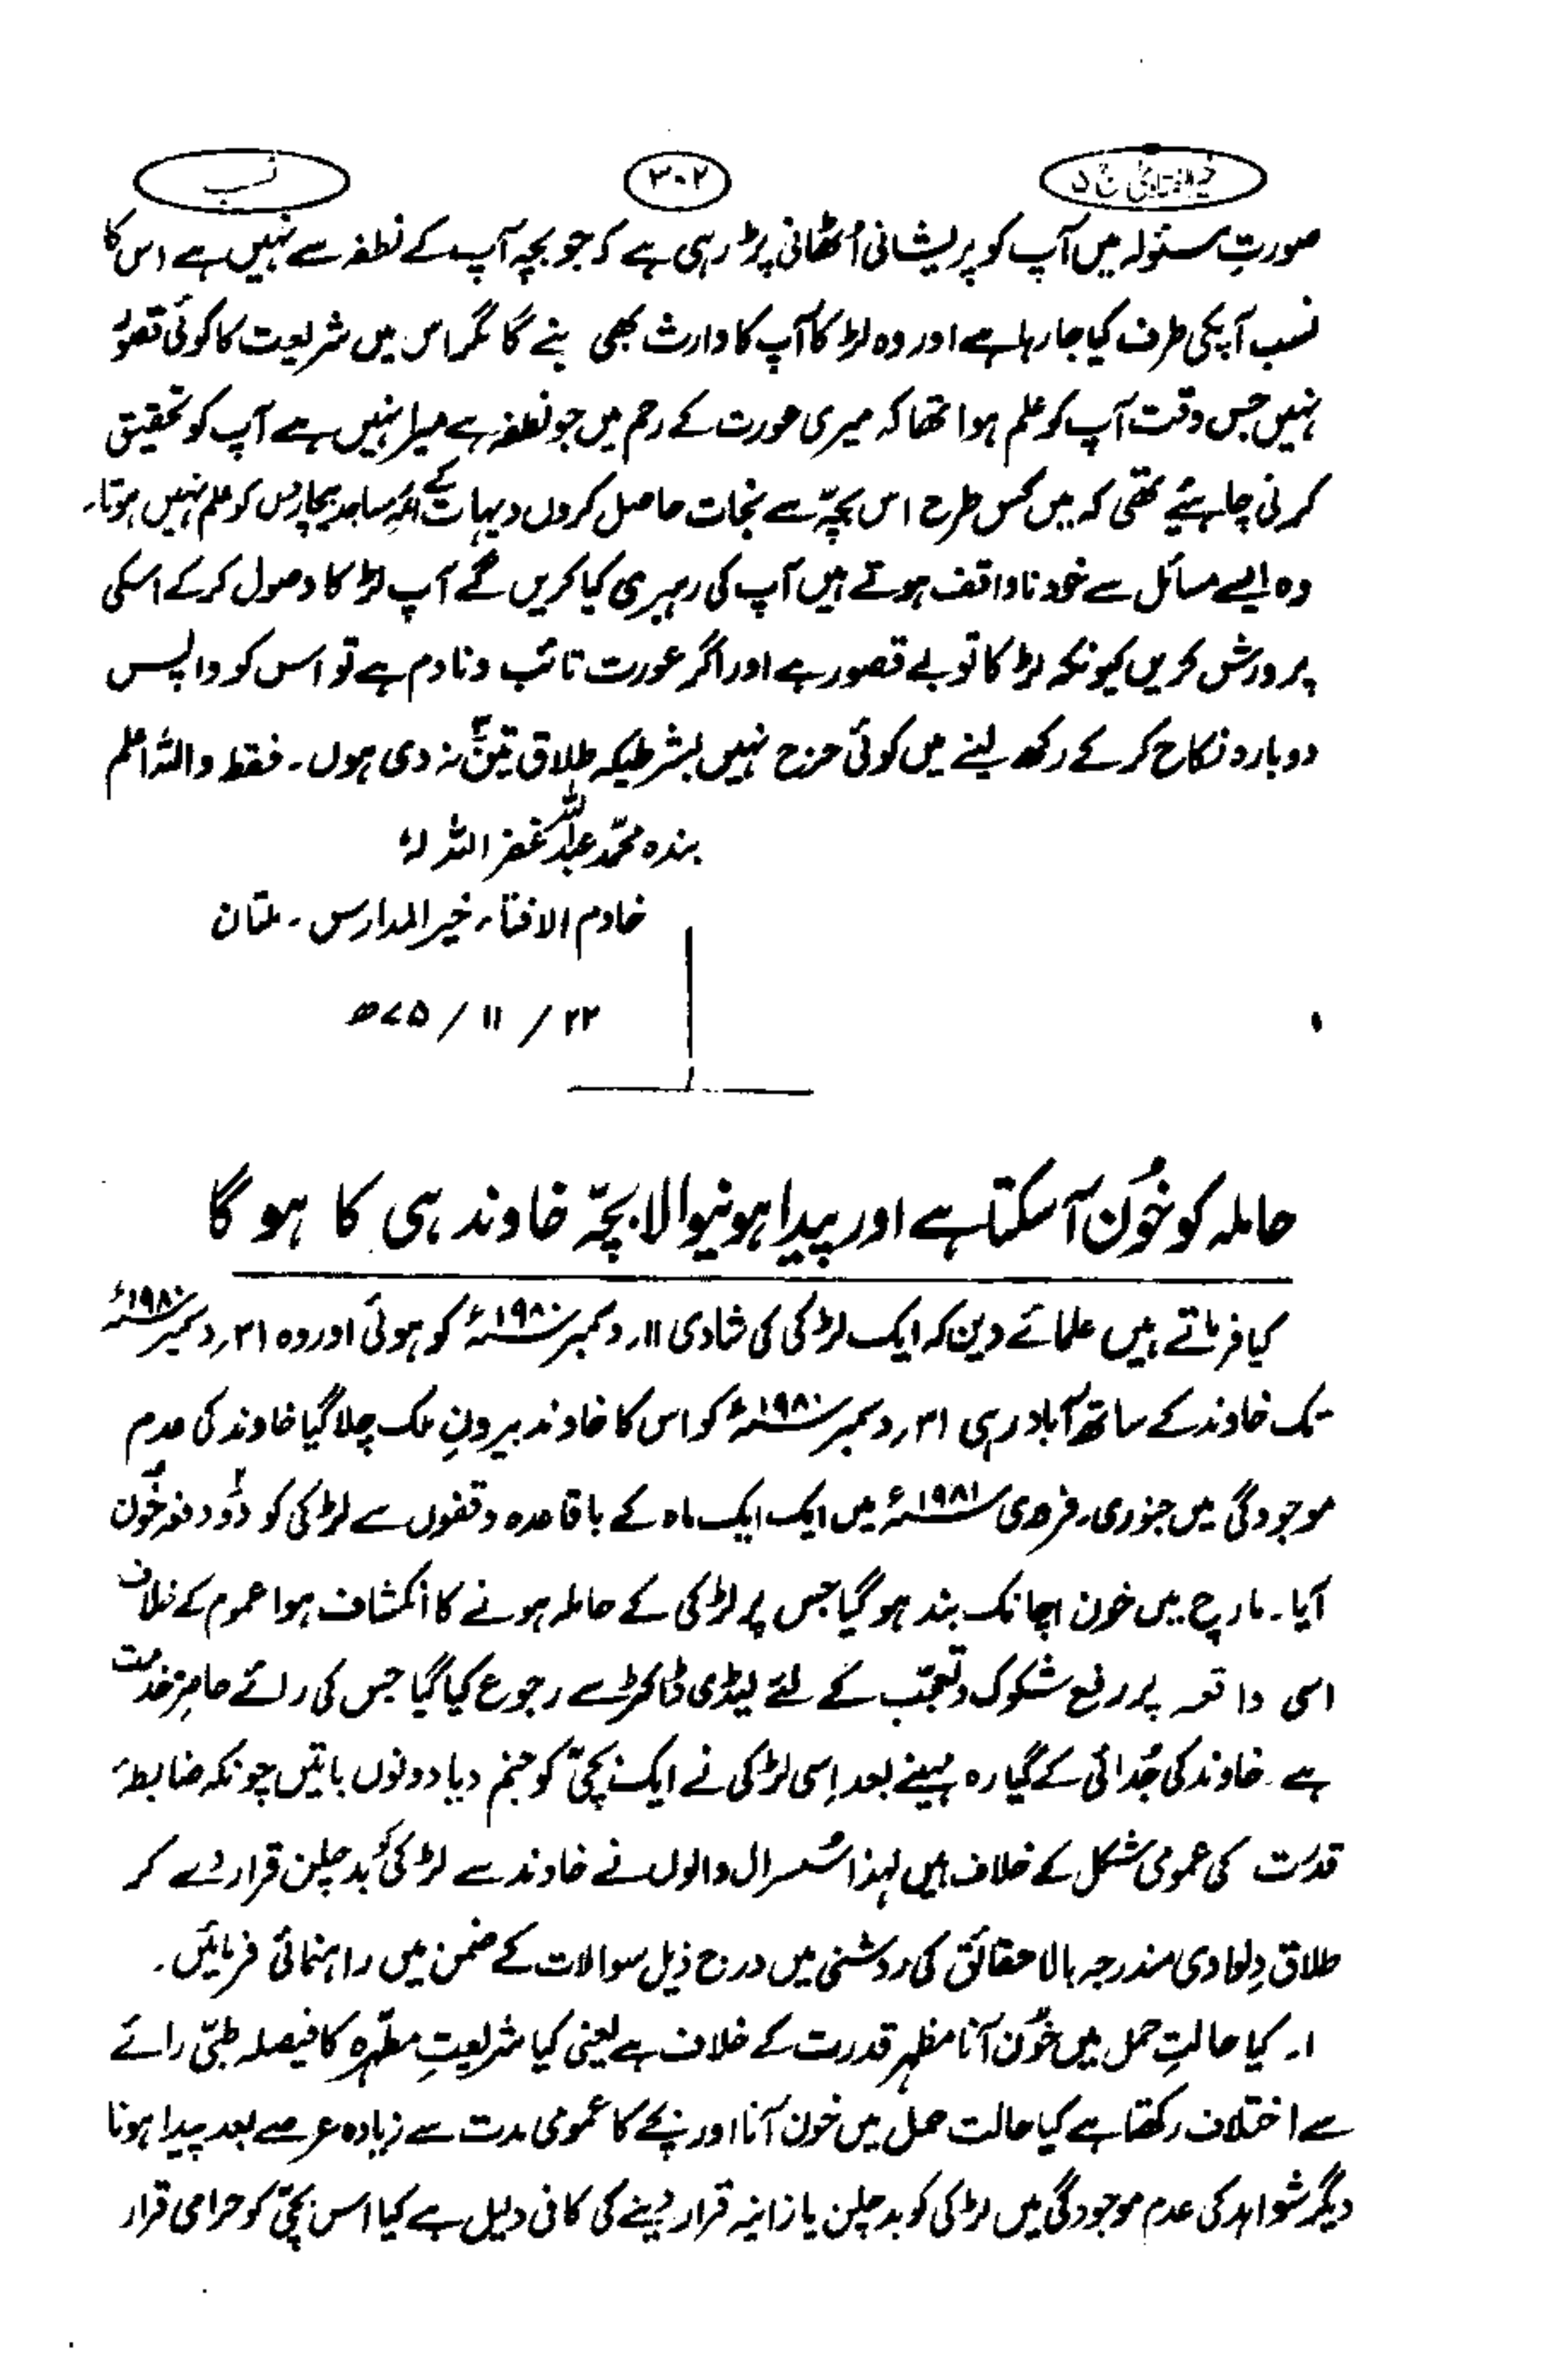 نسب
۳۰۲
صورتِ مسئولہ میں آپ کو پریشانی اُٹھانی پڑ رہی ہے کہ جو بچہ آپ کے نطفہ سے نہیں ہے اس کا
نسب آپکی طرف کیا جا رہا ہے اور وہ لڑکا آپ کا وارث بھی بنے گا مگر اس میں شریعت کا کوئی قصور
نہیں جس وقت آپ کو علم ہوا تھا کہ میری عورت کے رحم میں جو نطفہ ہے میرا نہیں ہے آپ کو تحقیق
کرنی چاہیئے تھی کہ میں کس طرح اس بچہ سے نجات حاصل کروں دیہات کے ائمہ مساجد بیچاروں کو علم نہیں ہوتا۔
وہ ایسے مسائل سے خود ناواقف ہوتے ہیں آپ کی رہبری کیا کریں گے آپ لڑکا وصول کر کے اسکی
پرورش کریں کیونکہ لڑکا تو بے قصور ہے اور اگر عورت تائب و نادم ہے تو اس کو واپس
دوبارہ نکاح کر کے رکھ لینے میں کوئی حرج نہیں بشرطیکہ طلاق تین نہ دی ہوں۔ فقط واللہ اعلم
بندہ محمد عبد اللہ غفر اللہ لہٗ
خادم الافتاء خیر المدارس۔ ملتان
۲۲ / ۱۱ / ۷۵ھ
حاملہ کو خُون آسکتا ہے اور پیدا ہونیوالا بچہّ خاوند ہی کا ہو گا
کیا فرماتے ہیں علمائے دین کہ ایک لڑکی کی شادی ۱۱ر دسمبر ۱۹۸۰ء کو ہوئی اور وہ ۳۱ر دسمبر ۱۹۸۰ء
تک خاوند کے ساتھ آباد رہی ۳۱ر دسمبر ۱۹۸۰ء کو اس کا خاوند بیرونِ ملک چلا گیا خاوند کی عدم
موجودگی میں جنوری، فروری ۱۹۸۱ء میں ایک ایک ماہ کے باقاعدہ وقفوں سے لڑکی کو دو دفعہ خُون
آیا۔ مارچ میں خون اچانک بند ہو گیا جس پر لڑکی کے حاملہ ہونے کا انکشاف ہوا عموم کے خلاف
اسی واقعہ پر رفع شکوک و تعجّب کے لئے لیڈی ڈاکٹر سے رجوع کیا گیا جس کی رائے حاضر خدمت
ہے۔ خاوند کی جُدائی کے گیارہ مہینے بعد اِسی لڑکی نے ایک بچّی کو جنم دیا دونوں باتیں چونکہ ضابطۂ
قدرت کی عمومی شکل کے خلاف ہیں لہٰذا سُسرال والوں نے خاوند سے لڑکی کو بدچلن قرار دے کر
طلاق دِلوا دی مندرجہ بالا حقائق کی روشنی میں درج ذیل سوالات کے ضمن میں راہنمائی فرمائیں۔
۱۔ کیا حالتِ حمل میں خُون آنا مظہرِ قدرت کے خلاف ہے یعنی کیا شریعتِ مطہّرہ کا فیصلہ طبّی رائے
سے اختلاف رکھتا ہے کیا حالت حمل میں خون آنا اور بچے کا عمومی مدت سے زیادہ عرصے بعد پیدا ہونا
دیگر شواہد کی عدم موجودگی میں لڑکی کو بدچلن یا زانیہ قرار دینے کی کافی دلیل ہے کیا اس بچّی کو حرامی قرار